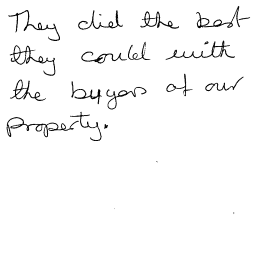 They did the best
they could with
the buyers of our
property.